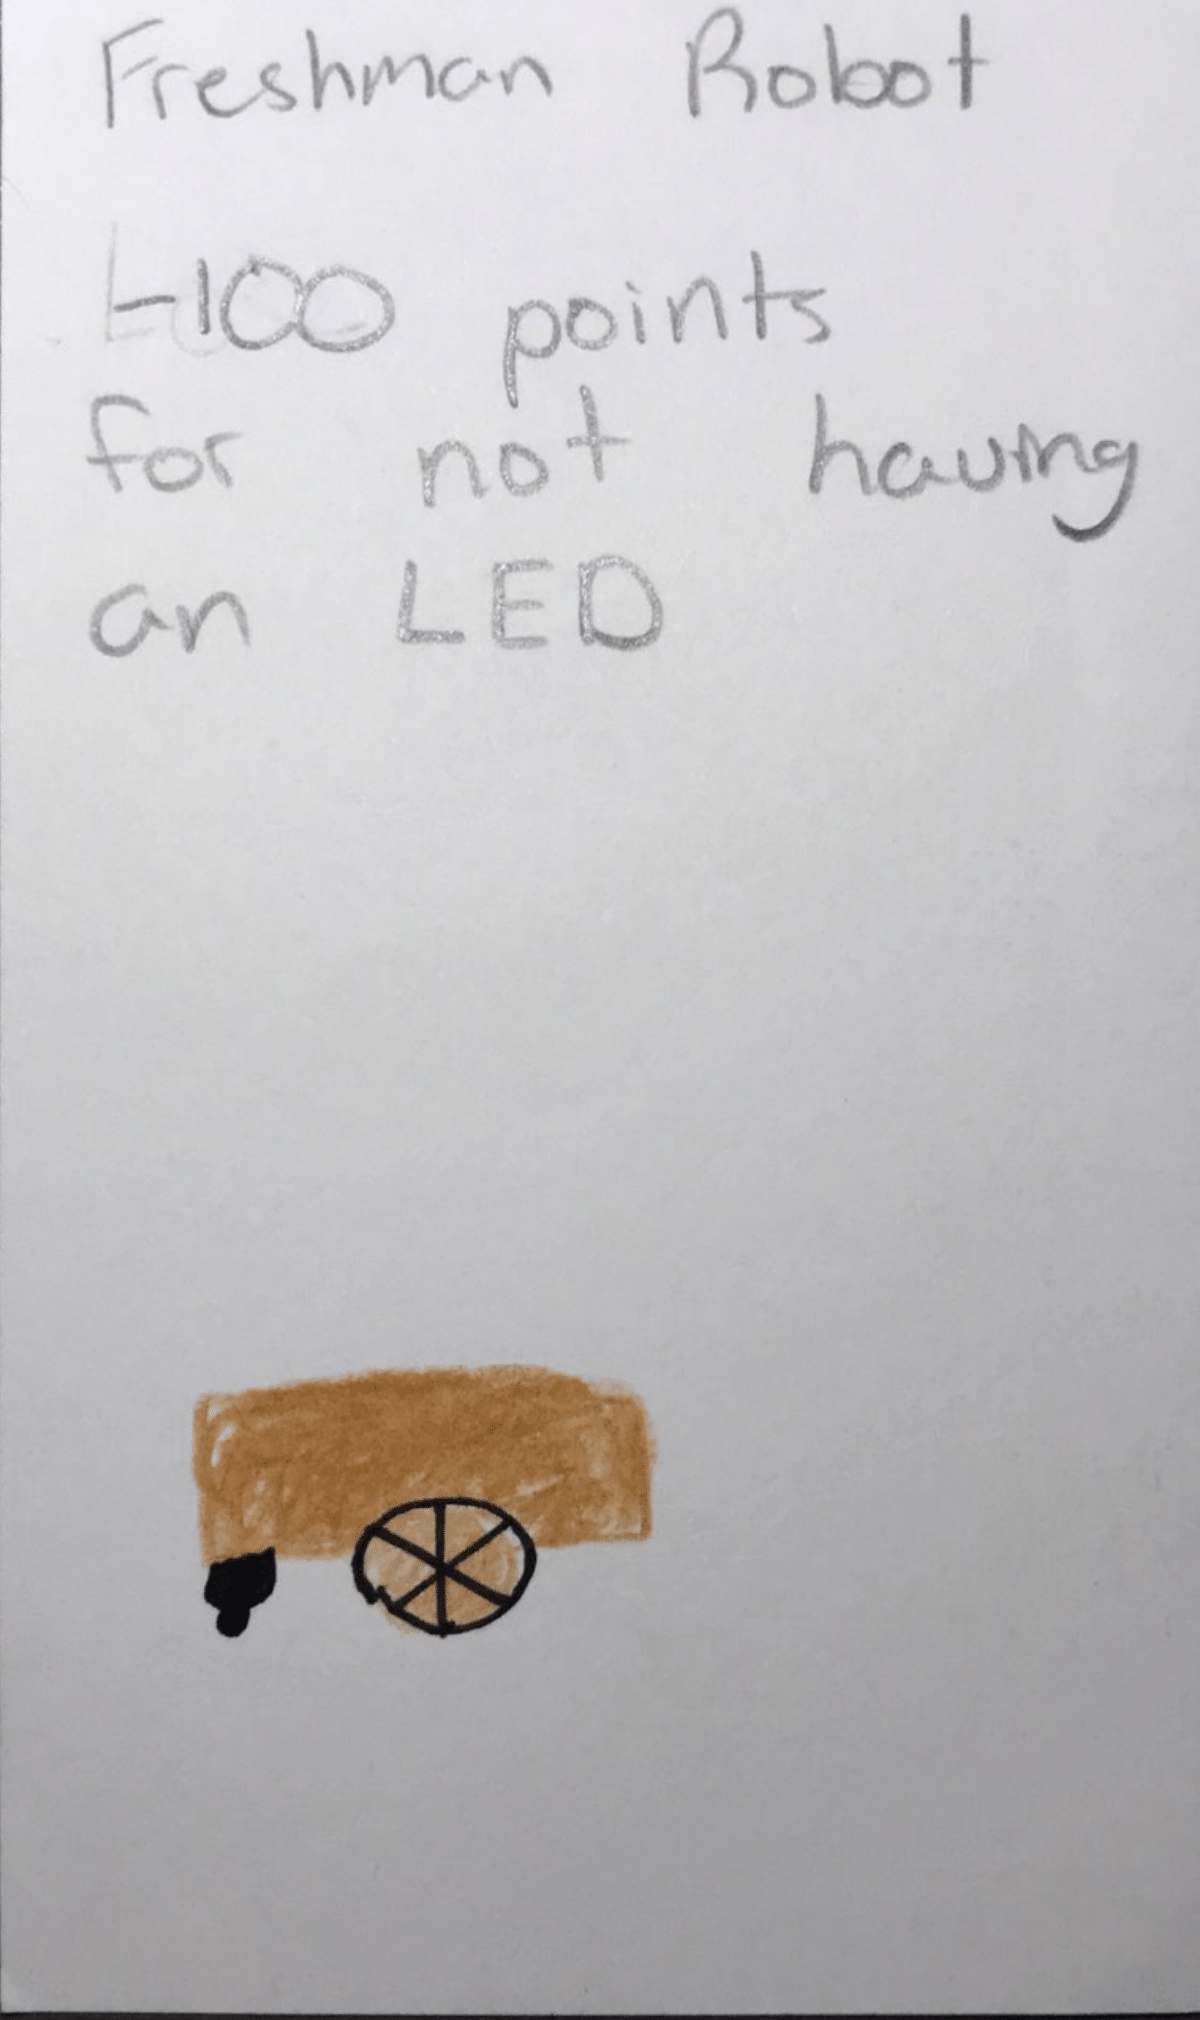 Freshman Robot
-100 points
for not having
an LED